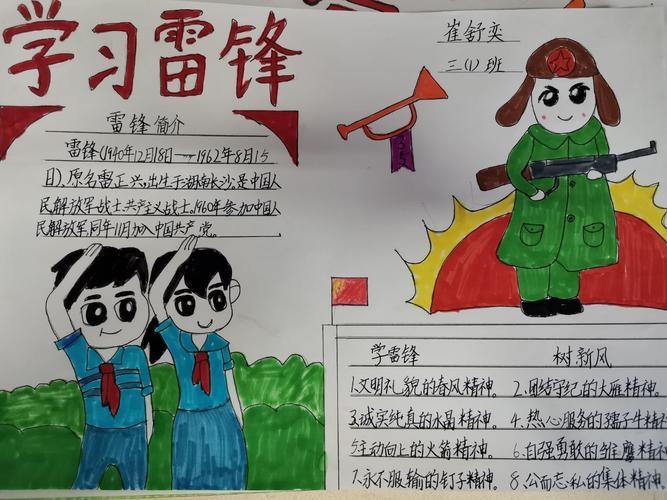 学习雷锋
崔舒奕
三(1)班
雷锋简介
雷锋(1940年12月18日——1962年8月15
日),原名雷正兴,出生于湖南长沙,是中国人
民解放军战士、共产主义战士。1960年参加中国人
民解放军,同年11月加入中国共产党。
学雷锋 树新风
1.文明礼貌的春风精神。 2.团结守纪的大雁精神。
3.诚实纯真的水晶精神。 4.热心服务的孺子牛精神
5.主动向上的火箭精神。 6.自强勇敢的雏鹰精神
7.永不服输的钉子精神。 8.公而忘私的集体精神。